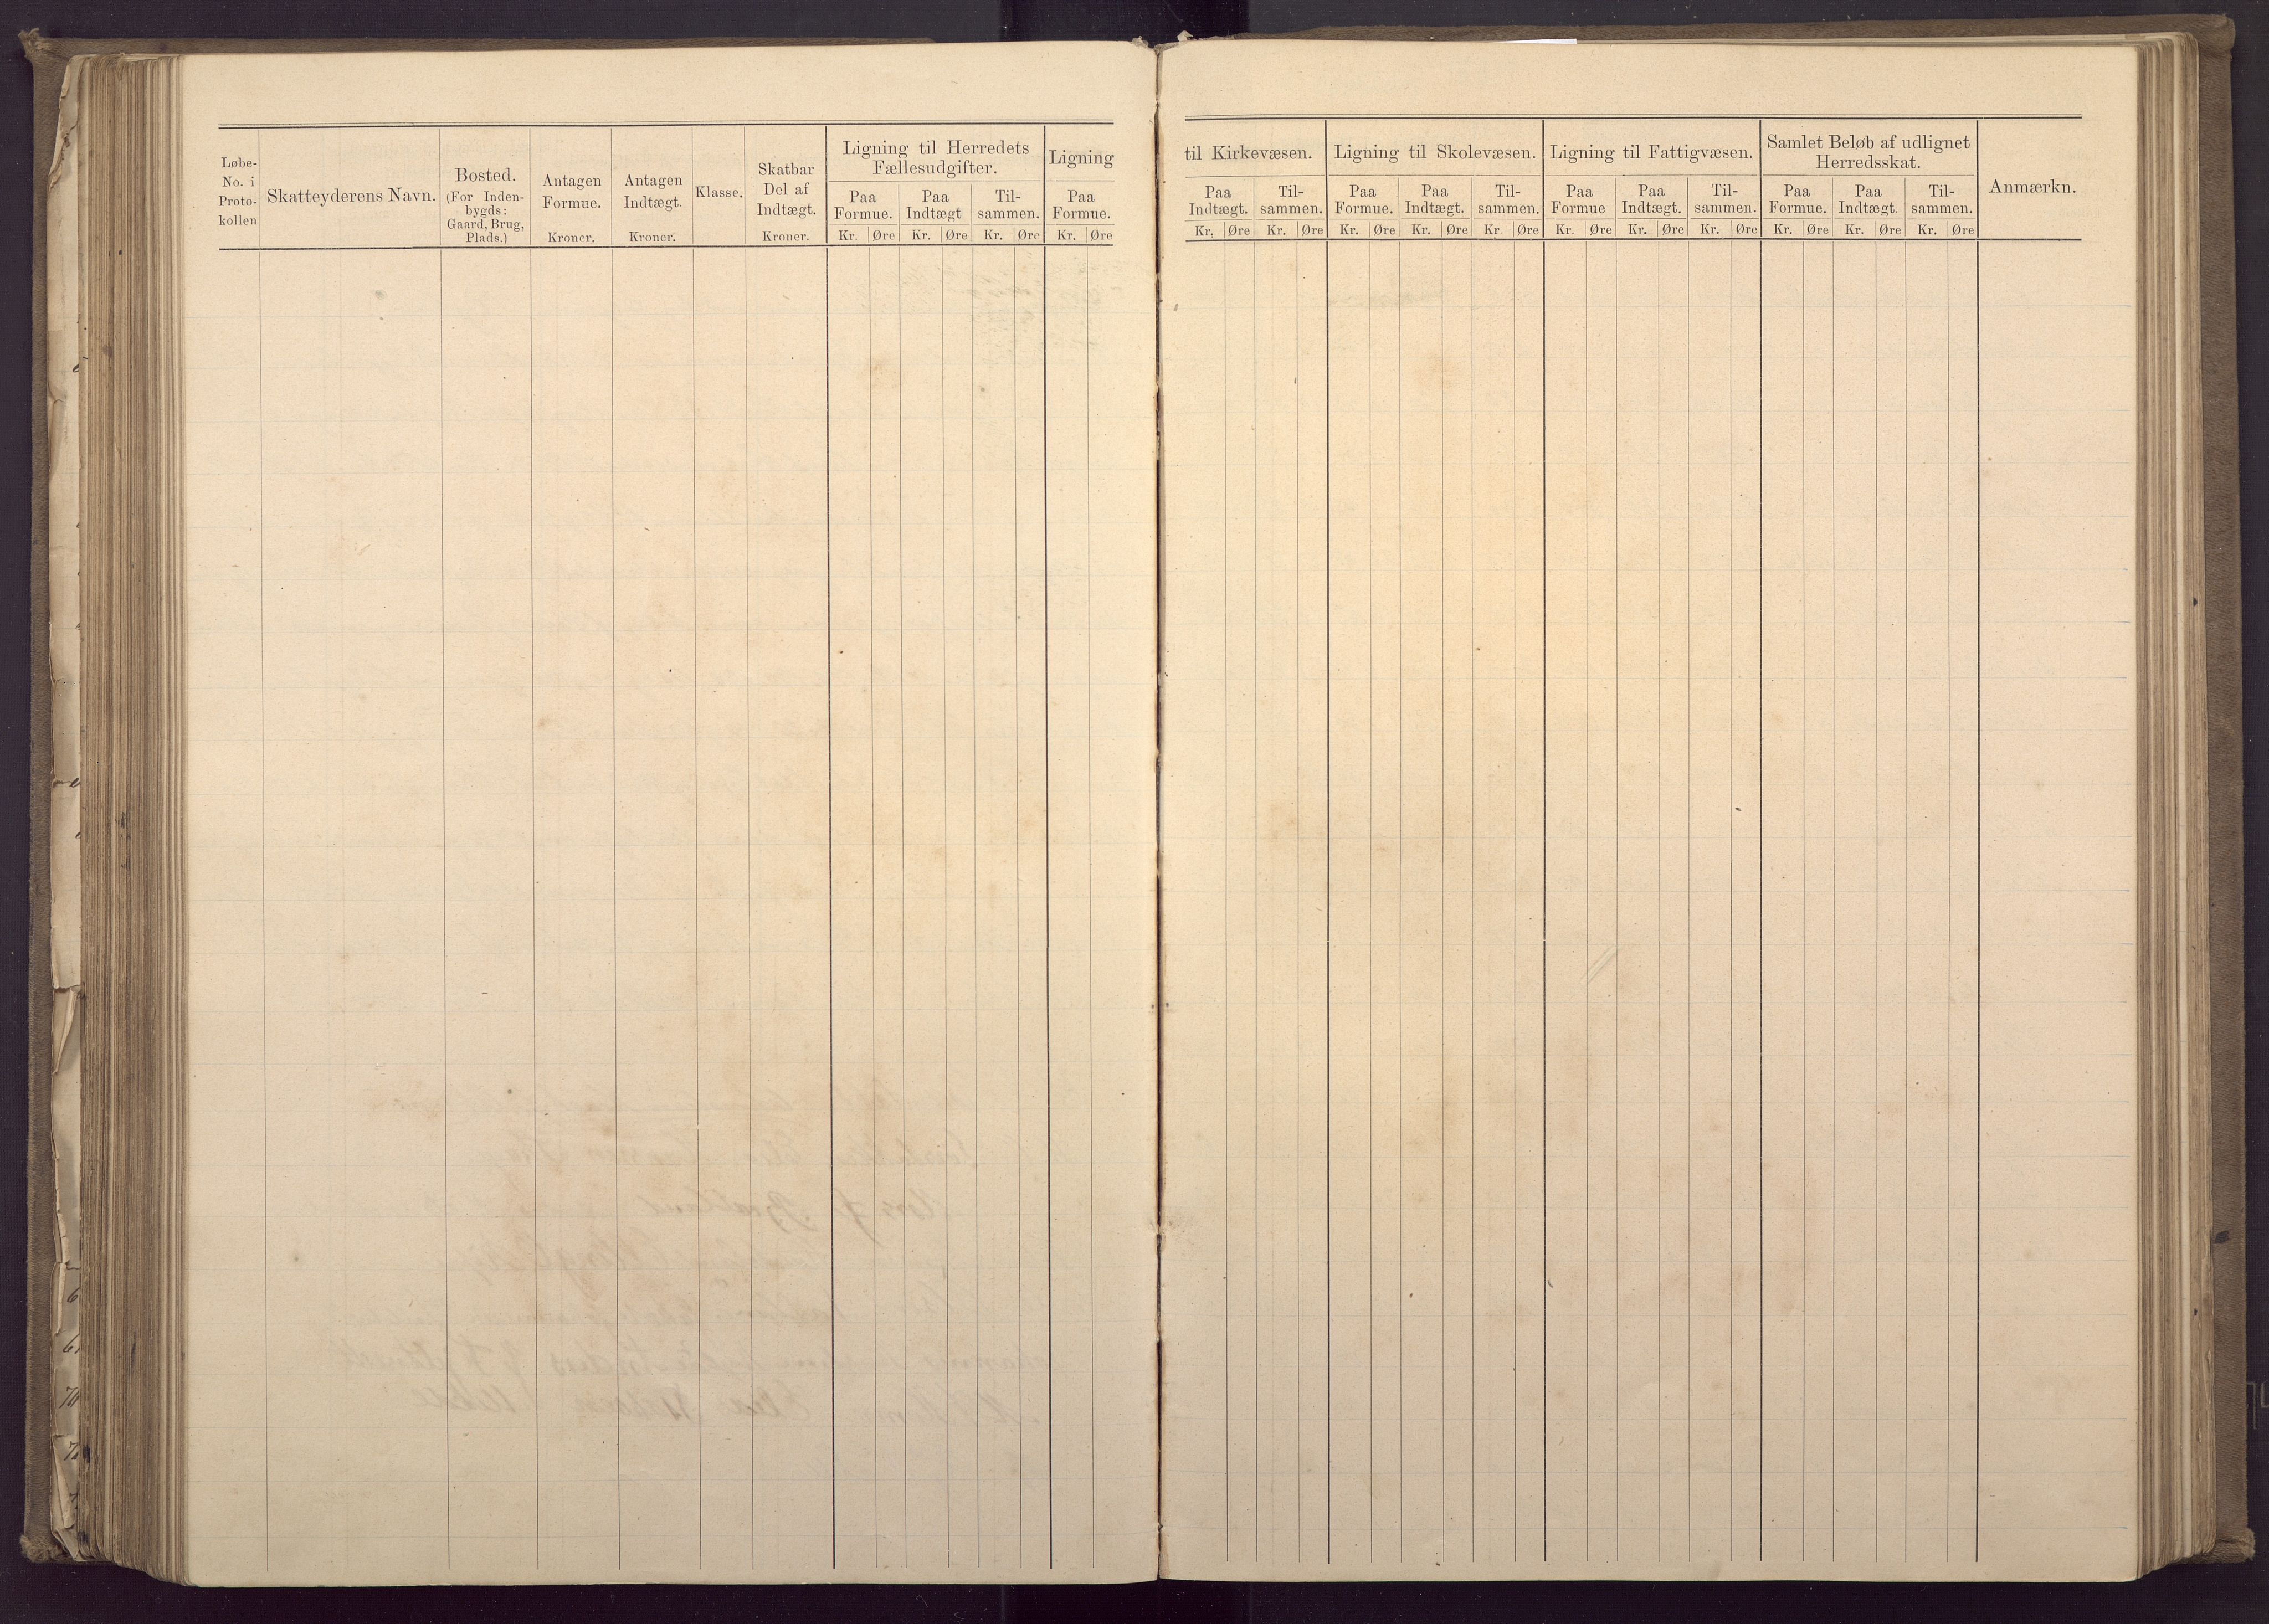 Løbe-
No. i
Proto-
kollen
Skatteyderens Navn.
Bosted.
(For Inden-
bygds:
Gaard, Brug,
Plads.)
Antagen
Formue.
Kroner.
Antagen
Indtægt.
Kroner.
Klasse.
Skatbar
Del af
Indtægt.
Kroner.
Ligning til Herredets
Fællesudgifter.
Paa
Formue.
Paa
Indtægt
Til-
sammen.
Kr. Øre Kr. Øre Kr. Øre
Ligning
Paa
Formue.
Kr. Øre
til Kirkevæsen.
Paa
Indtægt.
Til-
sammen.
Kr. Øre Kr. Øre
Ligning til Skolevæsen.
Paa
Formue.
Paa
Indtægt.
Til-
sammen.
Kr. Øre Kr. Øre Kr. Øre
Ligning til Fattigvæsen.
Paa
Formue
Paa
Indtægt.
Til-
sammen.
Kr. Øre Kr. Øre Kr. Øre
Samlet Beløb af udlignet
Herredsskat.
Paa
Formue.
Paa
Indtægt.
Til-
sammen.
Kr. Øre Kr. Øre Kr. Øre
Anmærkn.